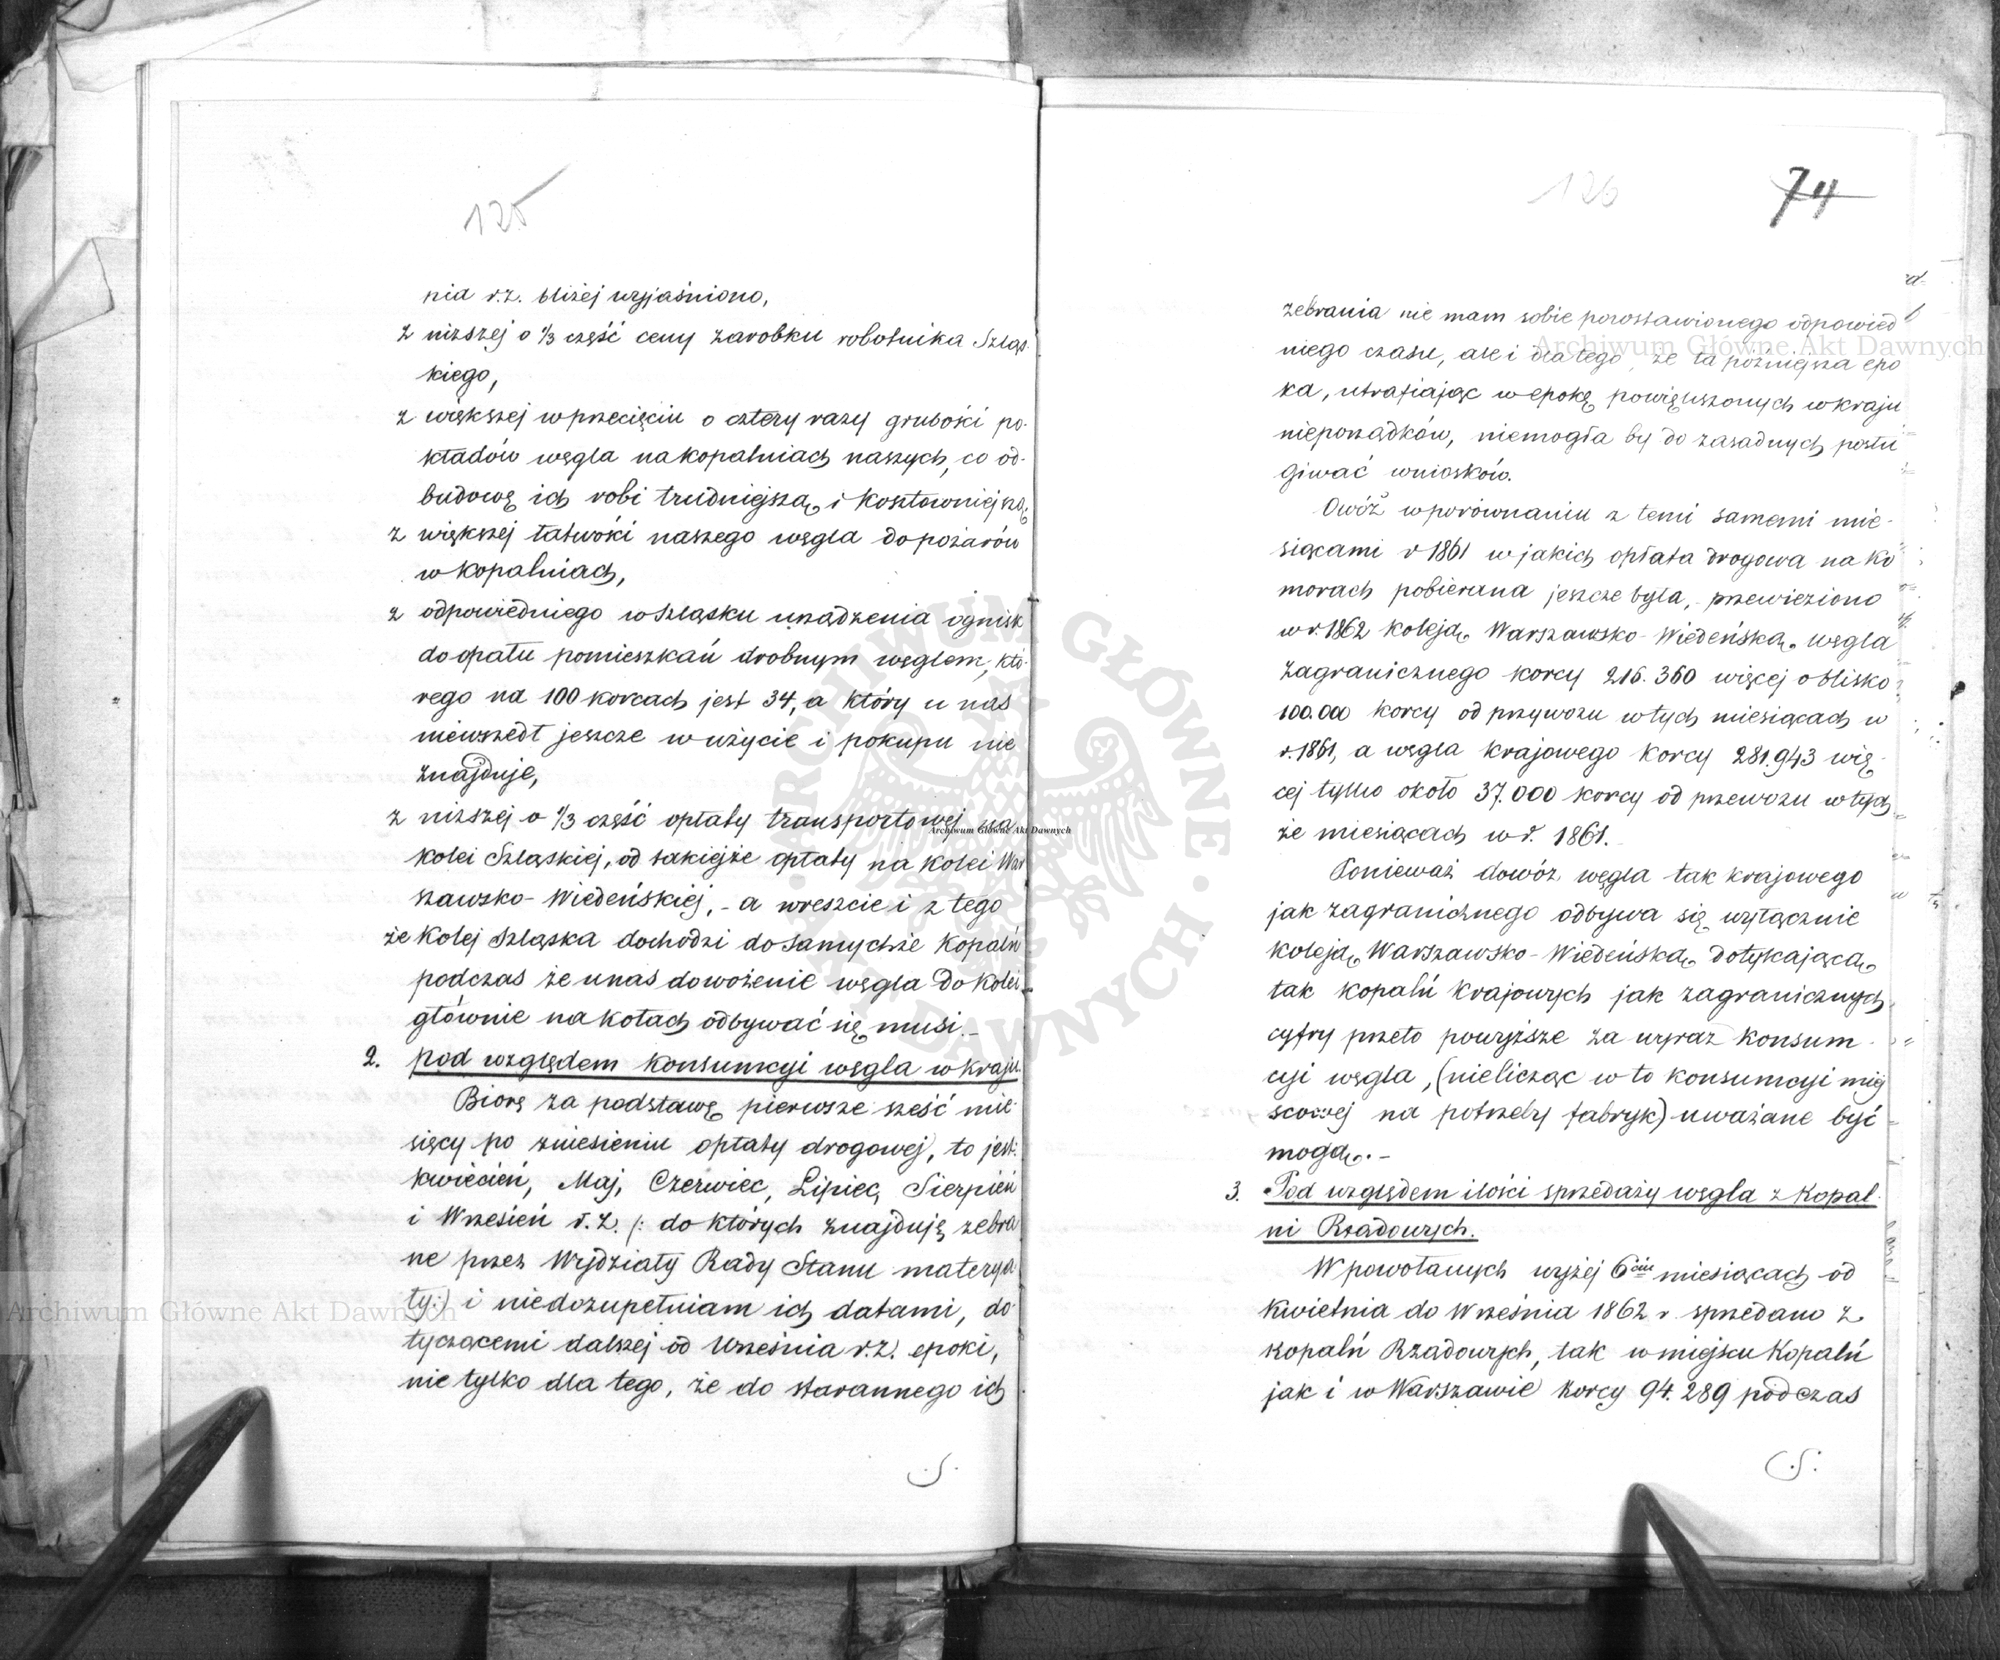 125
nia r.z. bliżej wyjaśniono,
z niższej o 1/3 część ceny zarobku robotnika Szląs-
kiego,
z większej w przecięciu o cztery razy grubości po-
kładów węgla na kopalniach naszych, co od-
budowę ich robi trudniejszą i kosztowniejszą,
z większej łatwości naszego węgla do pożarów
w kopalniach,
z odpowiedniego w Szląsku urządzenia ognisk
do opału pomieszkań drobnym węglem, któ-
rego na 100 korcach jest 34, a który u nas
niewszedł jeszcze w użycie i pokupu nie
znajduje,
z niższej o 1/3 część opłaty transportowej na
kolei Szląskiej, od takiejże opłaty na kolei War
szawsko-Wiedeńskiej, - a wreszcie i z tego
że kolej Szląska dochodzi do samychże kopalń
podczas że unas dowożenie węgla do kolei
głównie na kołach odbywać się musi.-
2. pod względem konsumcyi węgla w kraju.
Biorę za podstawę pierwsze sześć mie-
sięcy po zniesieniu opłaty drogowej, to jest:
Kwiecień, Maj, Czerwiec, Lipiec, Sierpień
i Wrzesień r.z. /: do których znajduję zebra
ne przez Wydziały Rady Stanu materya-
ły:/ i niedozupełniam ich datami, do-
tyczącemi dalszej od Września r.z. epoki,
nie tylko dla tego, że do starannego ich
126
74
zebrania nie mam sobie pozostawionego odpowied
niego czasu, ale i dla tego, że ta późniejsza epo
ka, utrafiając w epokę powiększonych w kraju
nieporządków, niemogła by do zasadnych posłu
giwać wniosków.
Owóż w porównaniu z temi samemi mie-
siącami r 1861 w jakich opłata drogowa na Ko
morach pobierana jeszcze była, przewieziono
w r. 1862 koleją Warszawsko-Wiedeńską węgla
zagranicznego korcy 216.360 więcej o blisko
100.000 korcy od przywozu w tych miesiącach w
r. 1861, a węgla krajowego korcy 281.943 wię-
cej tylko około 37.000 korcy od przewozu w tych
że miesiącach w r. 1861.
Ponieważ dowóz węgla tak krajowego
jak zagranicznego odbywa się wyłącznie
koleją Warszawsko-Wiedeńską dotykającą
tak kopalń krajowych jak zagranicznych
cyfry przeto powyższe za wyraz konsum-
cyi węgla, (nielicząc w to konsumcyi miej
scowej na potrzeby fabryk) uważane być
mogą.-
3. Pod względem ilości sprzedaży węgla z Kopal-
ni Rządowych.
W powołanych wyżej 6ciu miesiącach od
Kwietnia do Września 1862 r. sprzedano z
kopalń Rządowych, tak w miejscu Kopalń
jak i w Warszawie korcy 94.289 podczas
Archiwum Główne Akt Dawnych
Archiwum Główne Akt Dawnych
Archiwum Główne Akt Dawnych
ARCHIWUM GŁÓWNE AKT DAWNYCH